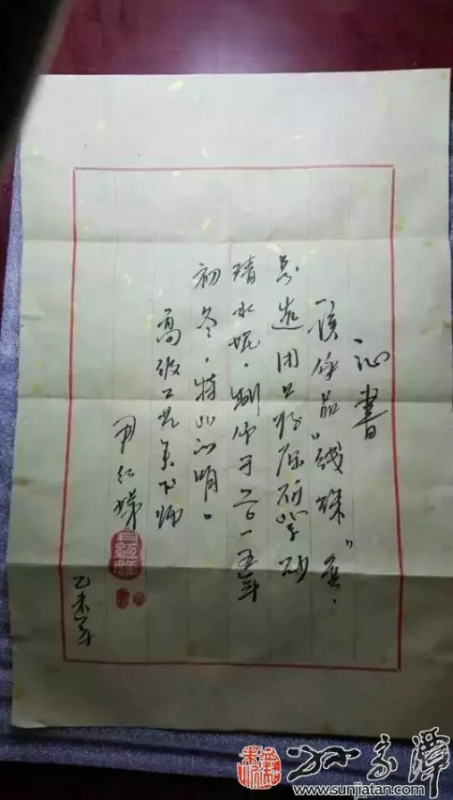 证書
该作品"线 "壶,
选用上好原矿紫砂
清水坭,制作于二〇一五年
初冬。特此证明。
高级工艺美术师
尹红娣
乙未年
孙家潭
www.sunjiatan.com